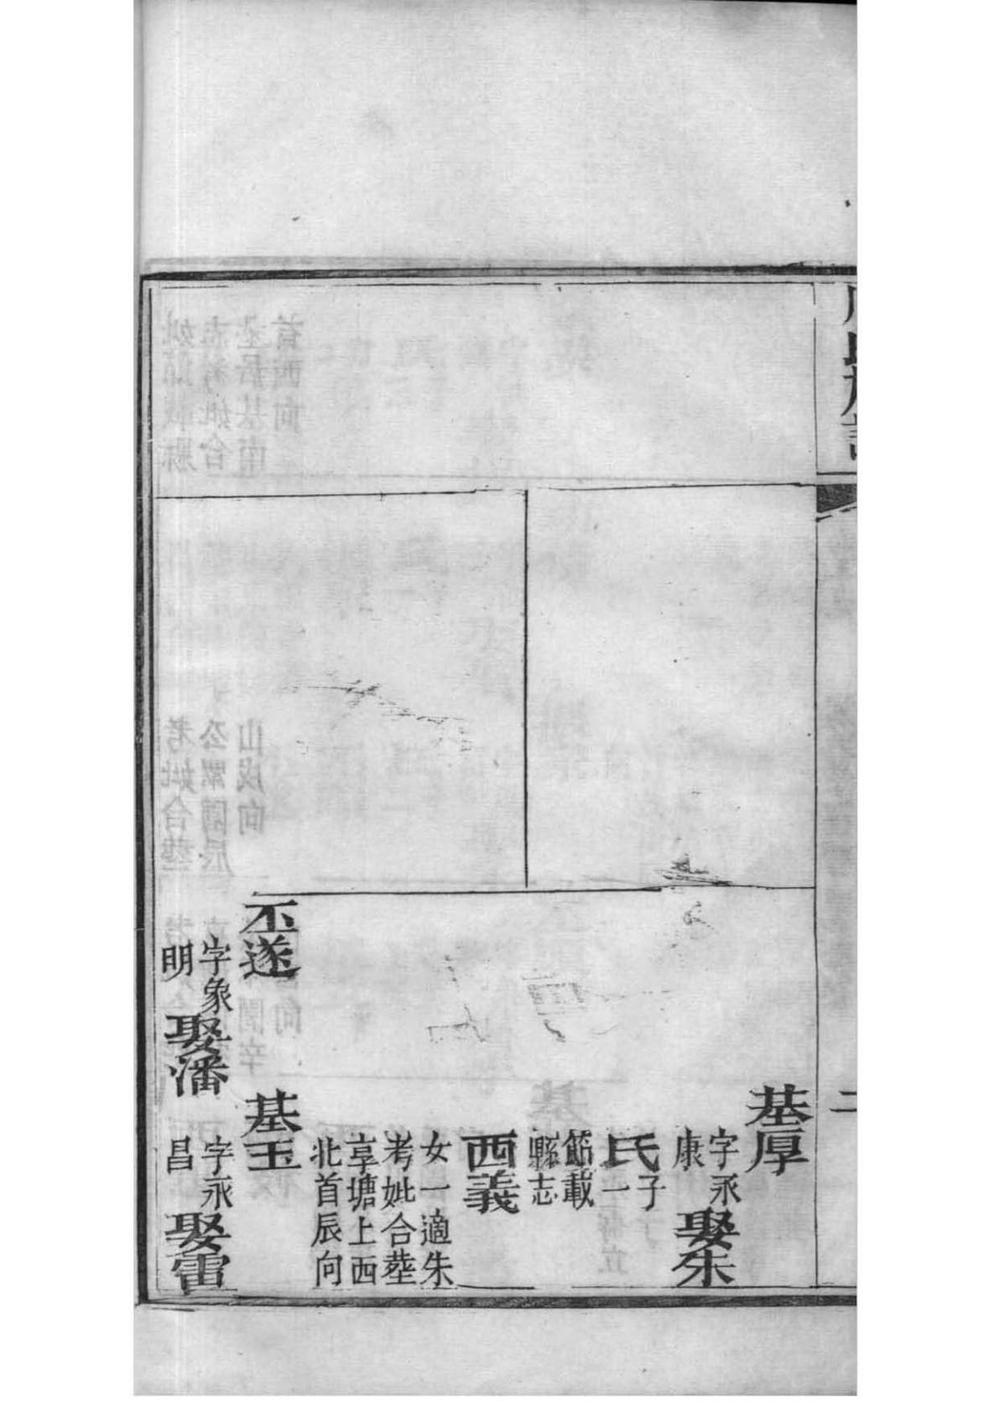 氏族譜
二
基厚
字永
康
娶朱
氏
子
一
節載
縣志
西義
女一適朱
考妣合塟
享塘上西
北首辰向
丕遂
字象
明
娶潘
基玉
字永
昌
娶雷